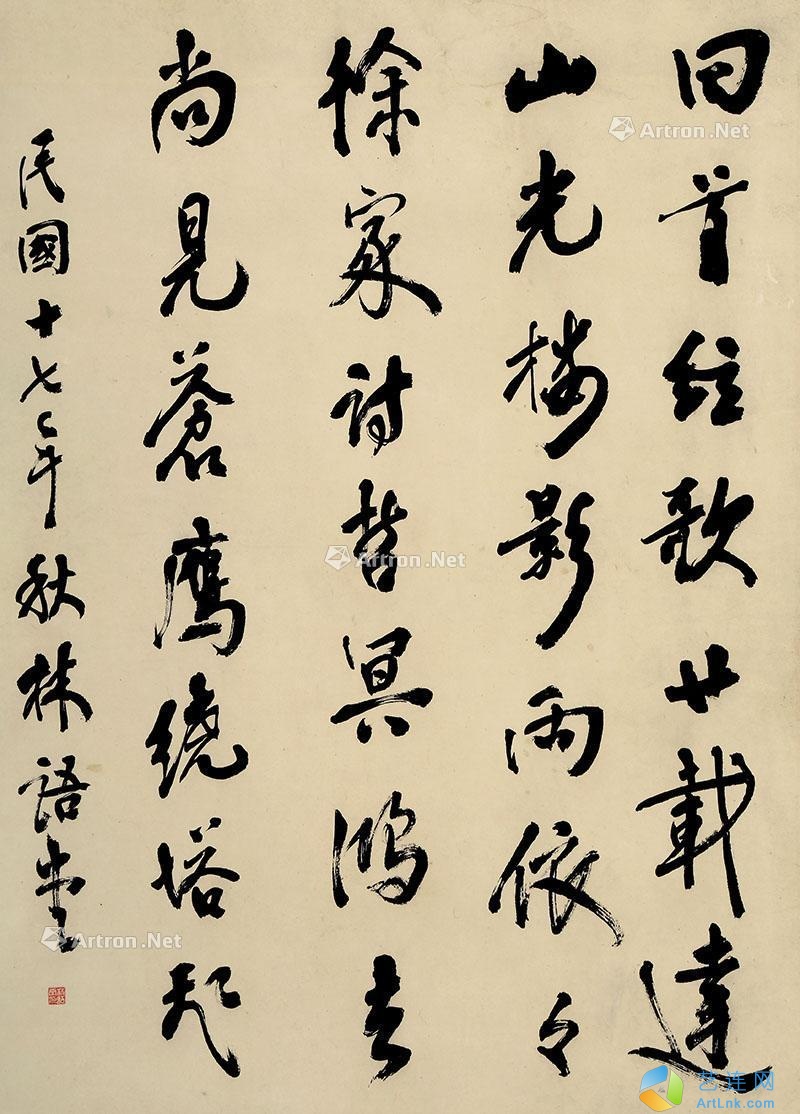 囘首絃歌廿載違
山光樓影兩依々
徐家詩哲冥鴻去
尚見蒼鷹繞塔飛
民國十七年秋林語堂
Artron.Net
Artron.Net
Artron.Net
艺连网
ArtLnk.com